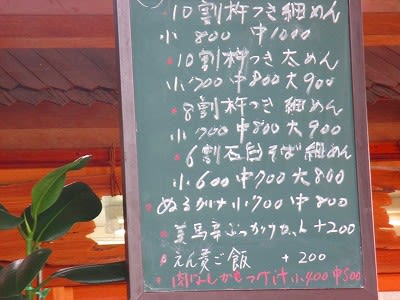 10割杵つき細めん
小800 中1000
10割杵つき太めん
小700 中800 大900
8割杵つき細めん
小700 中800 大900
6割石臼そば細めん
小600 中700 大800
ぬるかけ小700 中800
美馬辛ぶっかけ +200
えん麦ご飯 +200
肉なしかもつけ汁小400中500